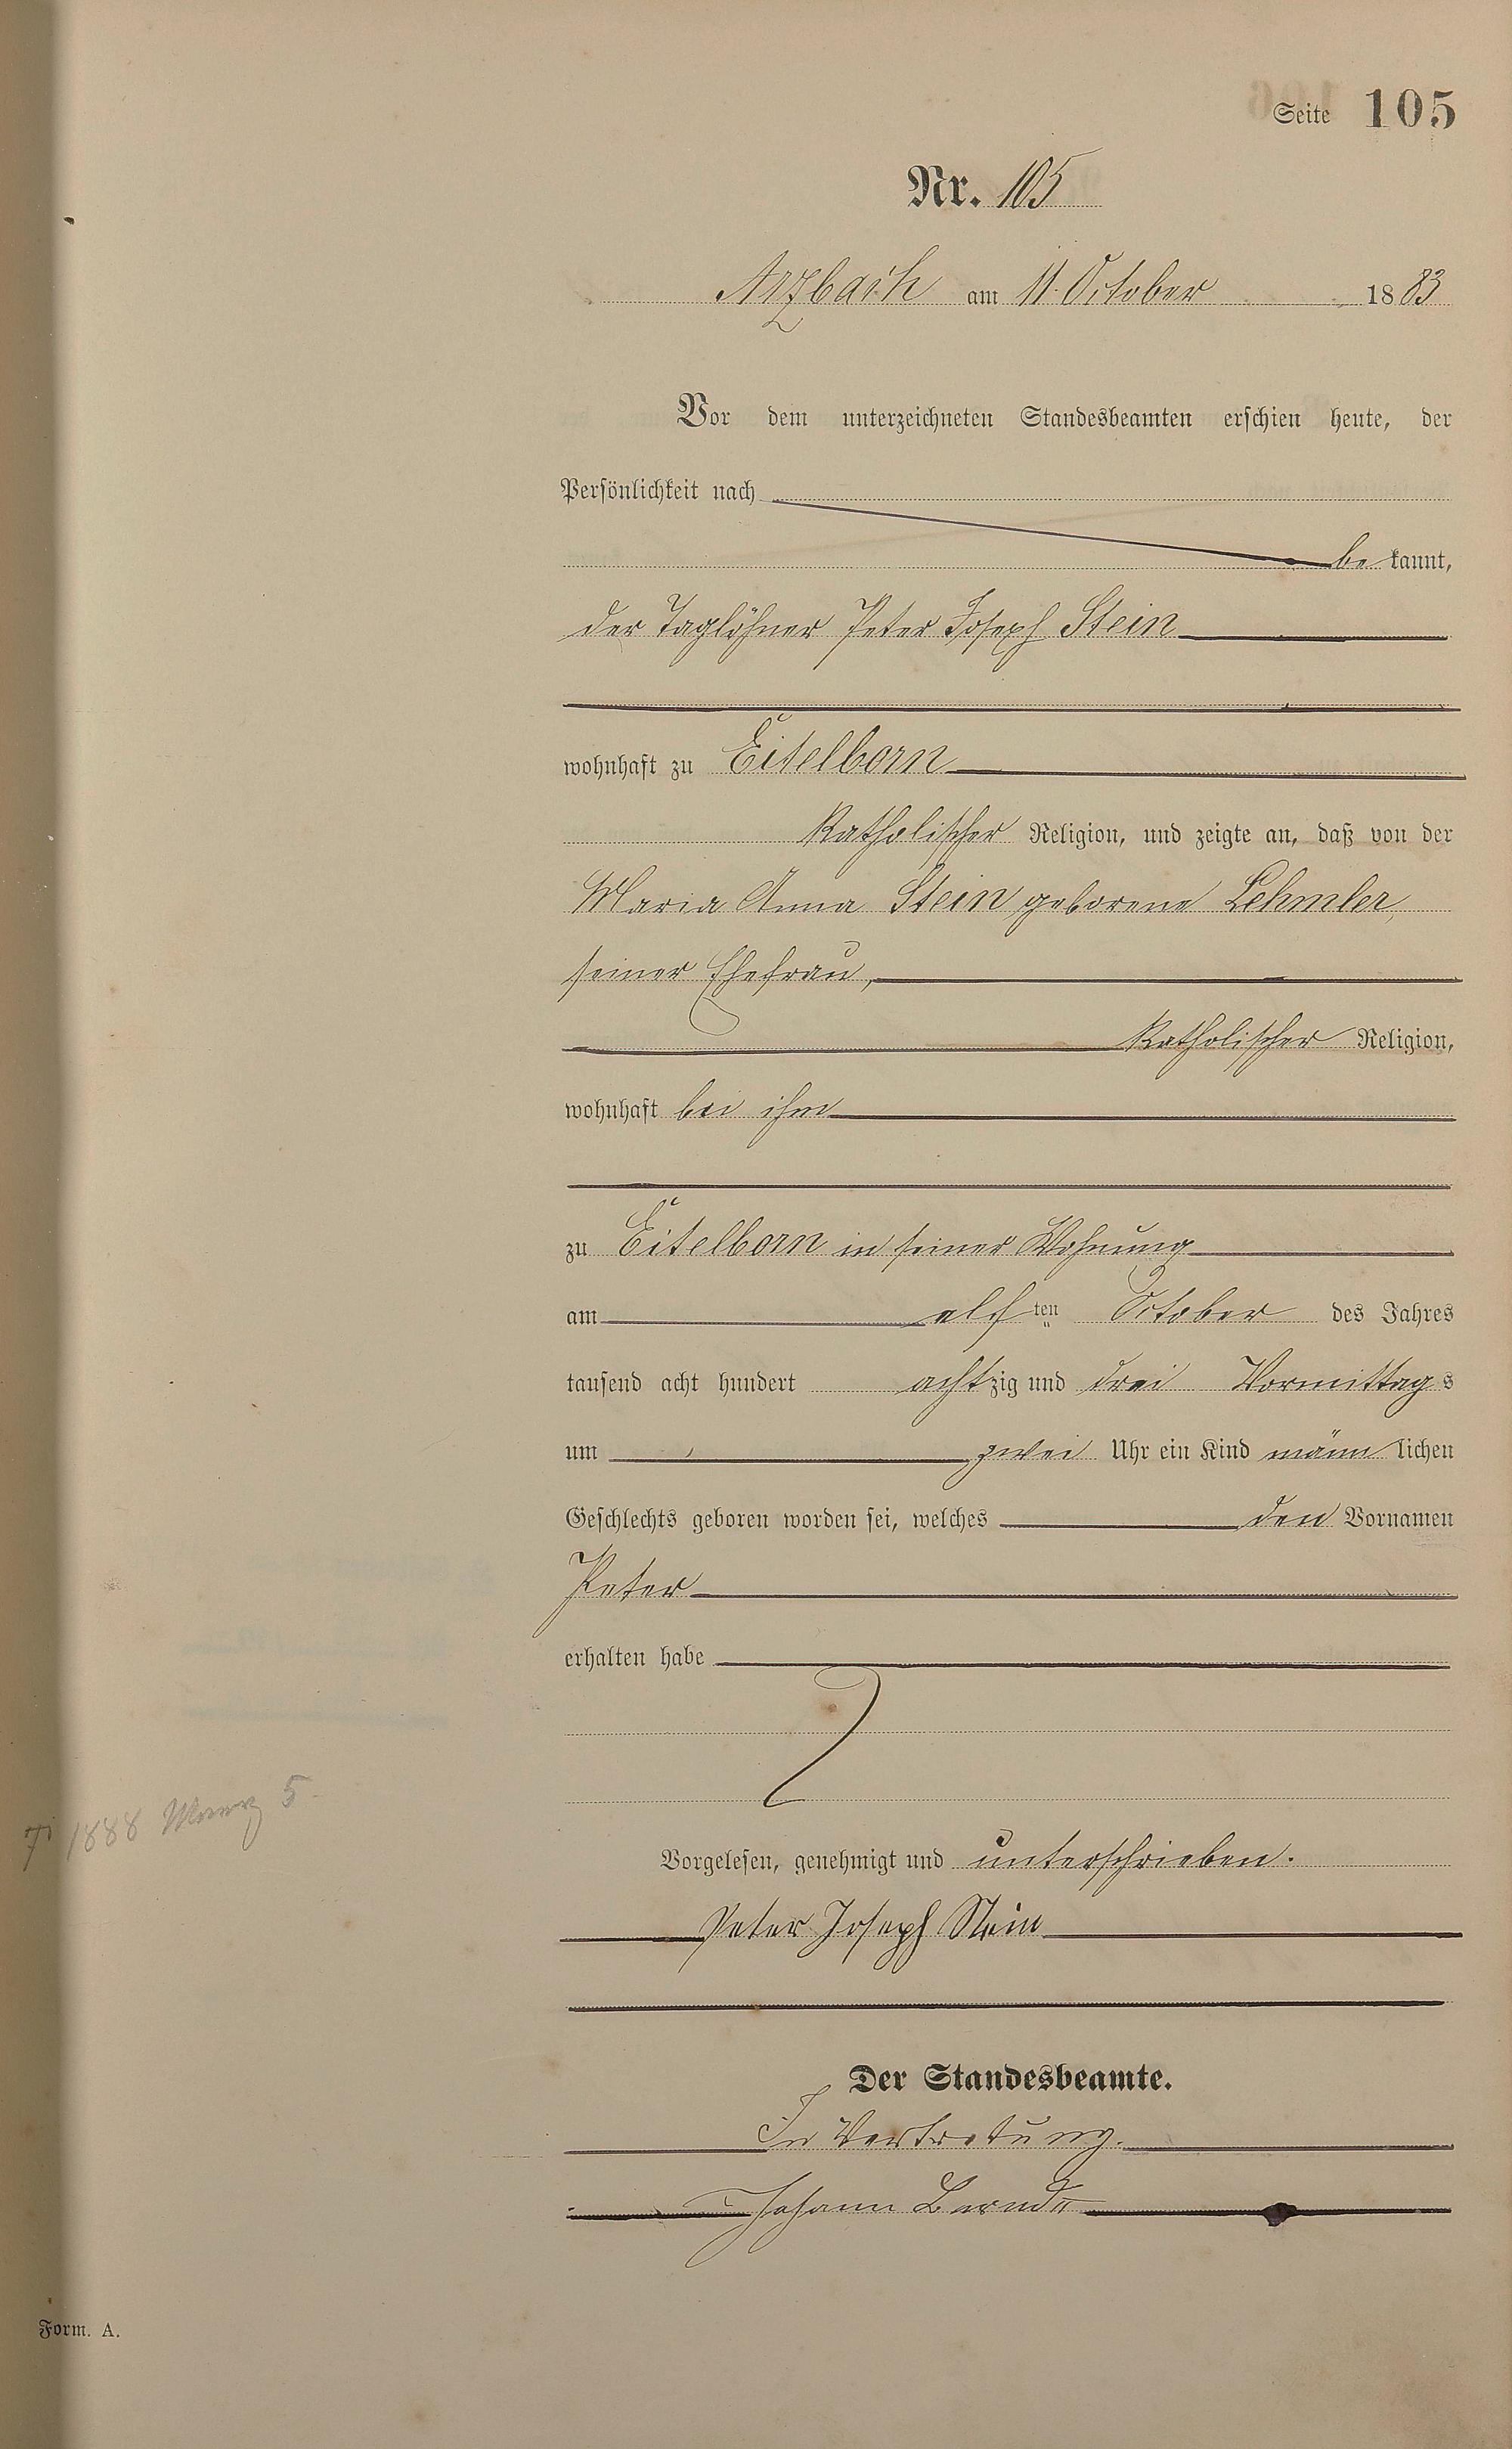 Seite 105
Nr. 105
Arzbach am 11. October 1883
Vor dem unterzeichneten Standesbeamten erschien heute, der
Persönlichkeit nach
be kannt,
der Taglöhner Peter Joseph Stein
wohnhaft zu Eitelborn
katholischer Religion, und zeigte an, daß von der
Maria Anna Stein geborene Lehmler,
seiner Ehefrau,
katholischer Religion,
wohnhaft bei ihm
zu Eitelborn in seiner Wohnung
am elf ten October des Jahres
tausend acht hundert achtzig und drei Vormittags
um zwei Uhr ein Kind männlichen
Geschlechts geboren worden sei, welches den Vornamen
Peter
erhalten habe
1888 5
Vorgelesen, genehmigt und unterschrieben.
Peter Joseph Stein
Der Standesbeamte.
In Vertretung.
Johann
Form. A.